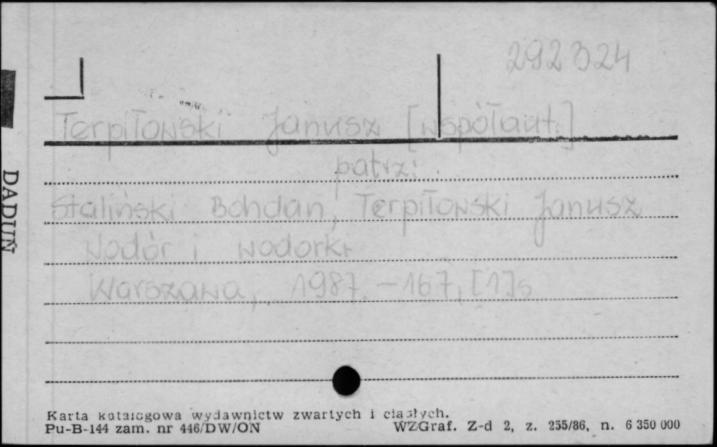 292324
Terpiłowski Janusz [współaut.]
patrz:
Staliński Bohdan, Terpiłowski Janusz
Wodór i wodorki
Warszawa, 1987. - 167, [1] s.
Karta katalogowa wydawnictw zwartych i ciągłych.
Pu-B-144 zam. nr 446/DW/ON WZGraf. Z-d 2, z. 255/86, n. 6 350 000
DADUŃ